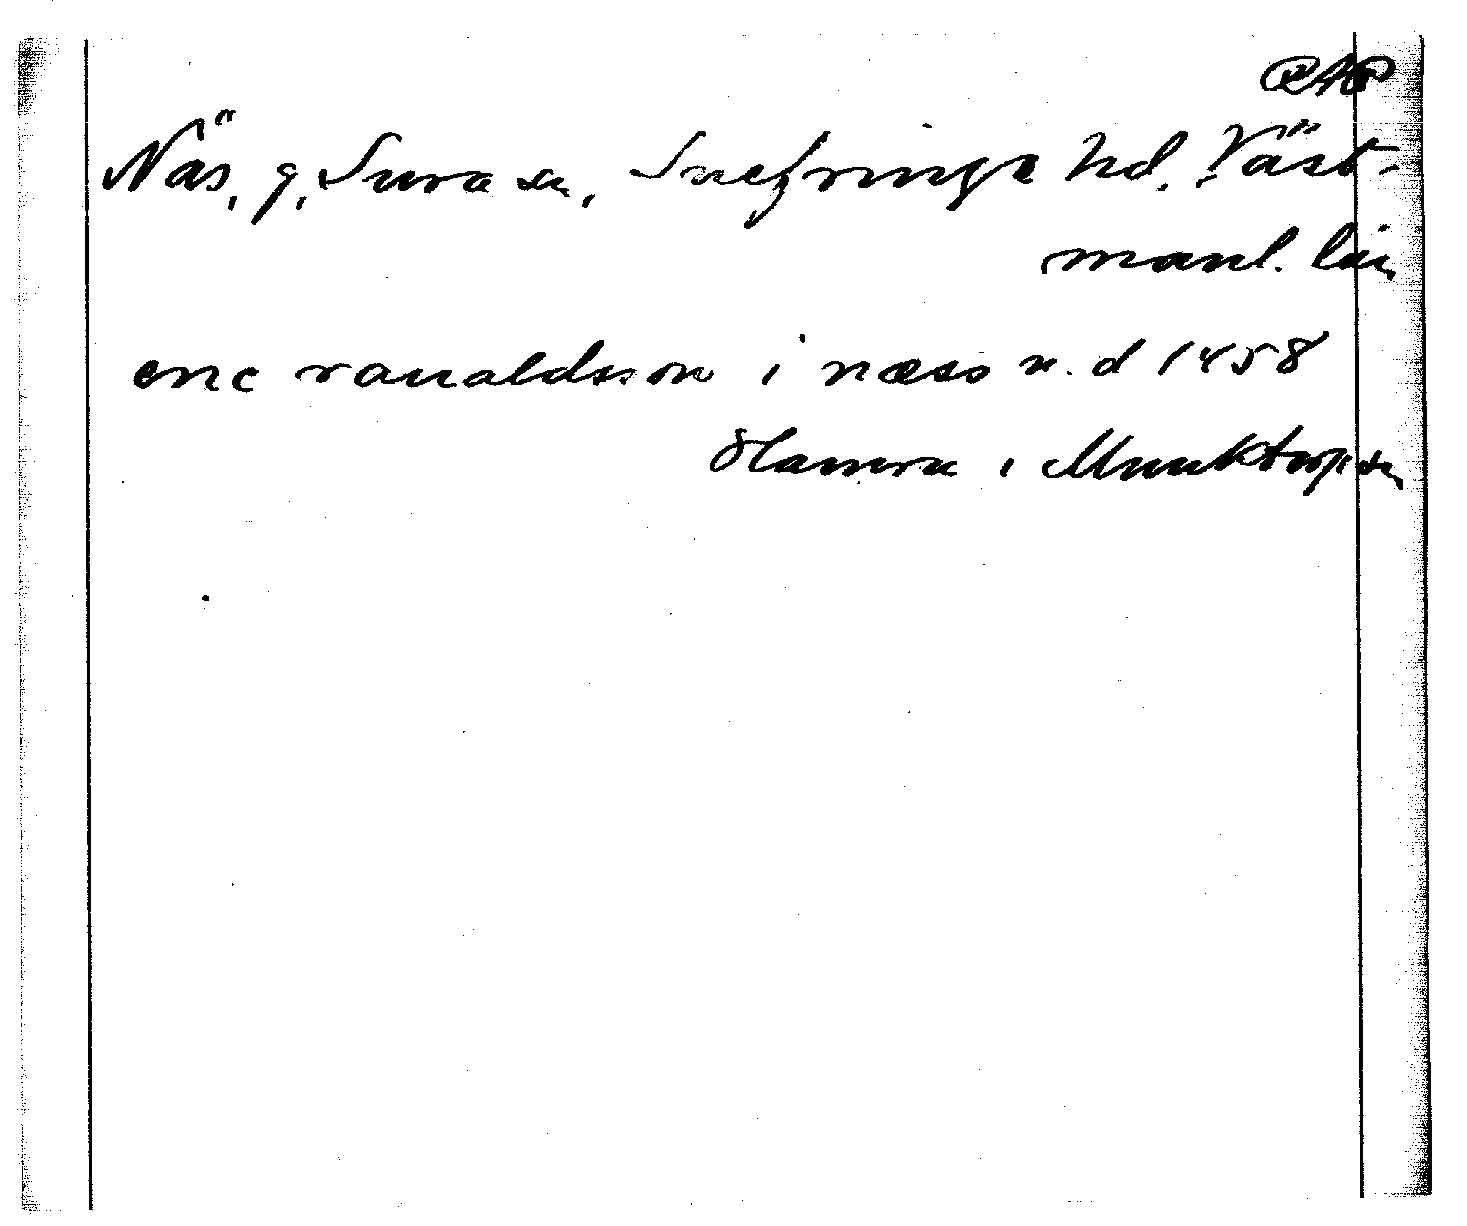 Näs, g, Sura sn, Snefringe hd. Väst-
manl. län
eric ranaldsson i næss u. d 1458
Hamra i Munktorp sn